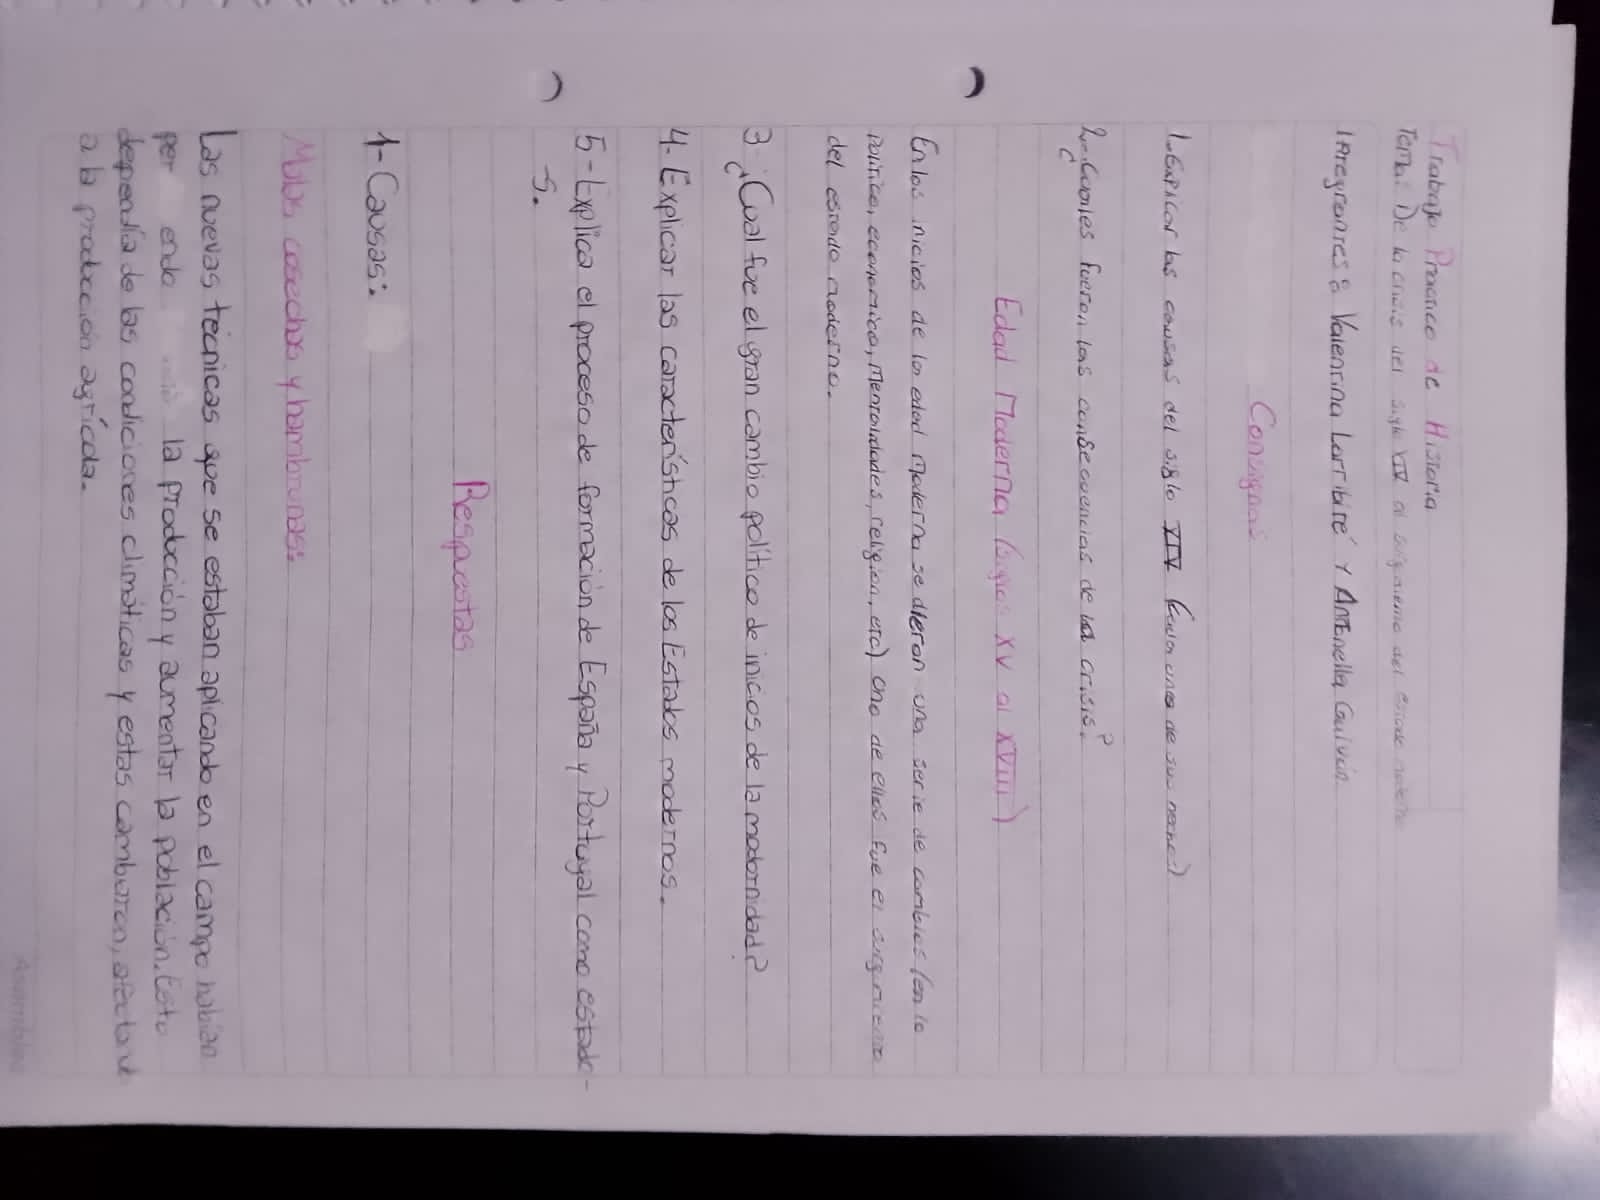 Trabajo Practico de Historia
Tema: De la crisis del siglo XIV al surgimiento del estado
Integrantes: Valentina Larribité y Antonella
Consignas
1-Explicar las causas del siglo XIV (cada una de su nombre)
2-¿Cuales fueron las consecuencias de la crisis?
Edad Moderna (siglos XV al XVIII)
En los inicios de la edad moderna se dieron una serie de cambios (en lo
politico, economico, mentalidades, religion, etc) Uno de ellos fue el surgimiento
del estado moderno.
3-¿Cual fue el gran cambio político de inicios de la modernidad?
4-Explicar las características de los Estados modernos.
5-Explica el proceso de formación de España y Portugal como estado-
s.
Respuestas
1-Causas:
Malas cosechas y hambrunas:
Las nuevas técnicas que se estaban aplicando en el campo habían
la producción y aumentar la población. Esto
dependía de las condiciones climáticas y estas cambiaron, afectand
a la producción agrícola.